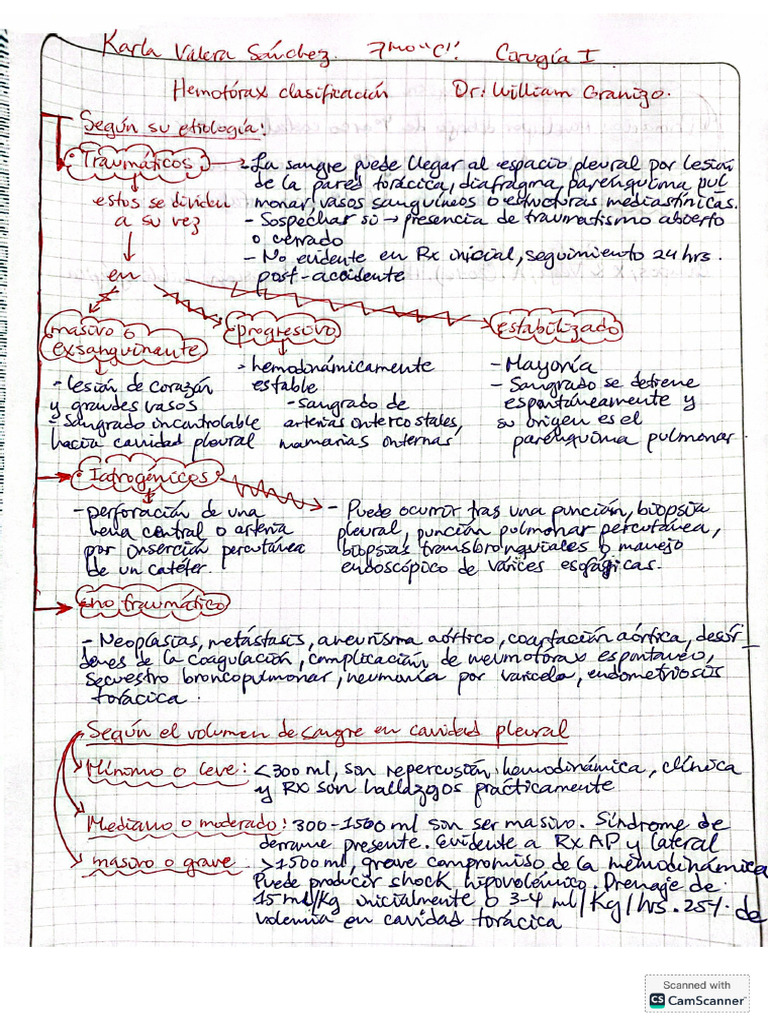 Karla Valera Sánchez. 7mo "C". Cirugía I
Hemotórax clasificación Dr: William Granizo.
Según su etiología:
Traumáticos
estos se dividen
a su vez
en
- La sangre puede llegar al espacio pleural por lesión
de la pared torácica, diafragma, parénquima pul
monar, vasos sanguíneos o estructuras mediastínicas.
- Sospechar si → presencia de traumatismo abierto
o cerrado
- No evidente en Rx inicial, seguimiento 24 hrs.
post-accidente
masivo o
exsanguinante
- lesión de corazón
y grandes vasos
- Sangrado incontrolable
hacia cavidad pleural
progresivo
- hemodinámicamente
estable
- sangrado de
arterias intercostales,
mamarias internas
estabilizado
- Mayoría
- Sangrado se detiene
espontáneamente y
su origen es el
parénquima pulmonar
Iatrogénicos
- perforación de una
vena central o arteria
por inserción percutánea
de un catéter.
- Puede ocurrir tras una punción, biopsia
pleural, punción pulmonar percutánea,
biopsias transbronquiales o manejo
endoscópico de várices esofágicas.
no traumático
- Neoplasias, metástasis, aneurisma aórtico, coartación aórtica, desór
denes de la coagulación, complicación de neumotórax espontáneo,
secuestro broncopulmonar, neumonía por varicela, endometriosis
torácica.
Según el volumen de sangre en cavidad pleural
Mínimo o leve: <300 ml, sin repercusión hemodinámica, clínica
y RX son hallazgos prácticamente
Mediano o moderado: 300-1500 ml sin ser masivo. Síndrome de
derrame presente. Evidente a Rx AP y lateral
masivo o grave >1500 ml, grave compromiso de la hemodinámica
Puede producir shock hipovolémico. Drenaje de
15 ml/Kg inicialmente o 3-4 ml/Kg/hrs. 25% de
volemia en cavidad torácica
Scanned with
CS CamScanner